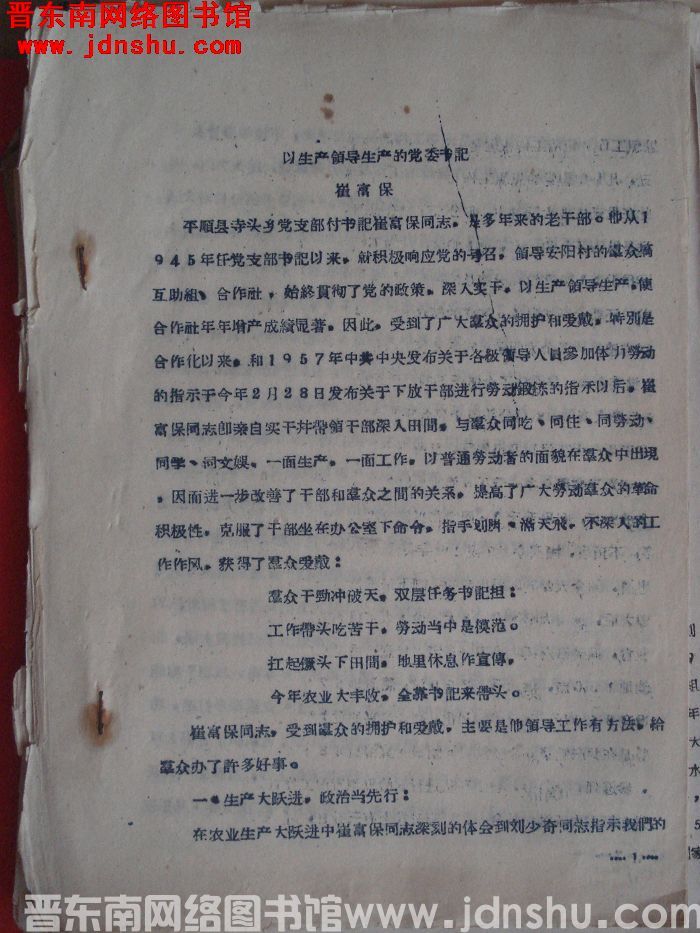 晋东南网络图书馆
www.jdnshu.com
以生产領导生产的党委书記
崔富保
平順县寺头乡党支部付书記崔富保同志，是多年来的老干部。他从1
945年任党支部书記以来，就积极响应党的号召，領导安阳村的羣众搞
互助組、合作社，始終貫彻了党的政策，深入实干，以生产領导生产，使
合作社年年增产成績显著。因此，受到了广大羣众的拥护和爱戴，特別是
合作化以来，和1957年中共中央发布关于各級領导人員参加体力勞动
的指示于今年2月28日发布关于下放干部进行勞动鍛炼的指示以后，崔
富保同志卽亲自实干幷帶領干部深入田間，与羣众同吃、同住、同勞动、
同学、同文娱、一面生产，一面工作，以普通勞动者的面貌在羣众中出現
，因而进一步改善了干部和羣众之間的关系，提高了广大勞动羣众的革命
积极性，克服了干部坐在办公室下命令，指手划脚，滿天飛，不深入的工
作作风，获得了羣众爱戴：
羣众干勁冲破天，双层任务书記担：
工作帶头吃苦干，勞动当中是模范。
扛起钁头下田間，地里休息作宣傳，
今年农业大丰收，全靠书記来帶头。
崔富保同志，受到羣众的拥护和爱戴，主要是他領导工作有方法，給
羣众办了許多好事。
一、生产大跃进，政治当先行：
在农业生产大跃进中崔富保同志深刻的体会到刘少奇同志指示我們的
····1····
晋东南网络图书馆www.jdnshu.com